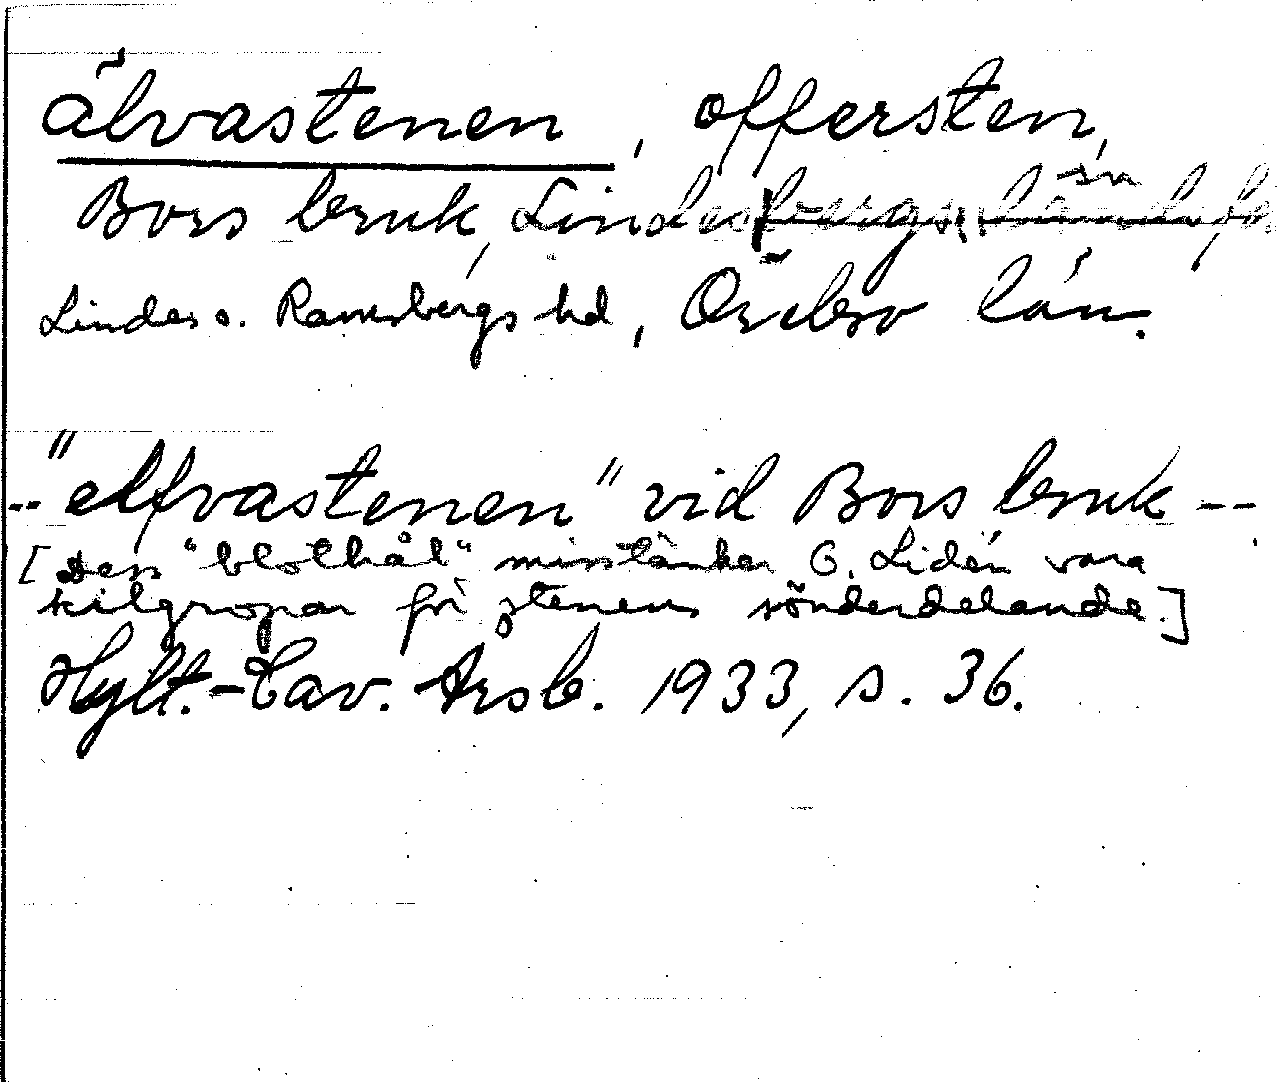 älvastenen, offersten,
Bors bruk, Lindesbergs landsfs sn
Lindes o. Ramsbergs hd, Örebro län.
-- "elfvastenen" vid Bors bruk --
[Dess "blothål" misstänker G. Lidén vara
kilgropar för stenens sönderdelande.]
Hylt.-Cav. Årsb. 1933, s. 36.